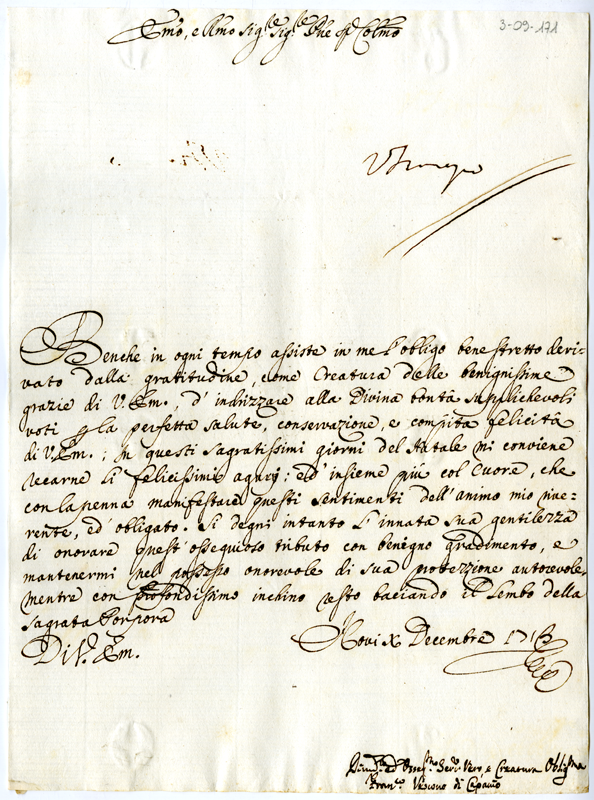 Emo, e Rmo Sigre Sigre Pne Colmo
3-09-171
Benche in ogni tempo assiste in me l'obligo bene stretto deri-
vato dalla gratitudine, come Creatura delle benignissime
grazie di V. Em. d'indrizzare alla Divina bontà supplichevoli
voti p la perfetta salute, conservazione, e compita felicità
di V. Em.; In questi sagratissimi giorni del Natale mi conviene
recarne li felicissimi agurj; ed' insieme più col Cuore, che
con la penna manifestare questi sentimenti dell'animo mio rive=
rente, ed' obligato. Si degni intanto l'innata sua gentilezza
di onorare quest'ossequioso tributo con benegno gradimento, e
mantenermi nel possesso onorevole di sua protezzione autorevole,
mentre con profondissimo inchino resto baciando il Lembo della
sagrata Porpora
Di V. Em. Novi X Decembre
Servre Vero, e Creatura Obligma
Franco Vescovo di Capaccio